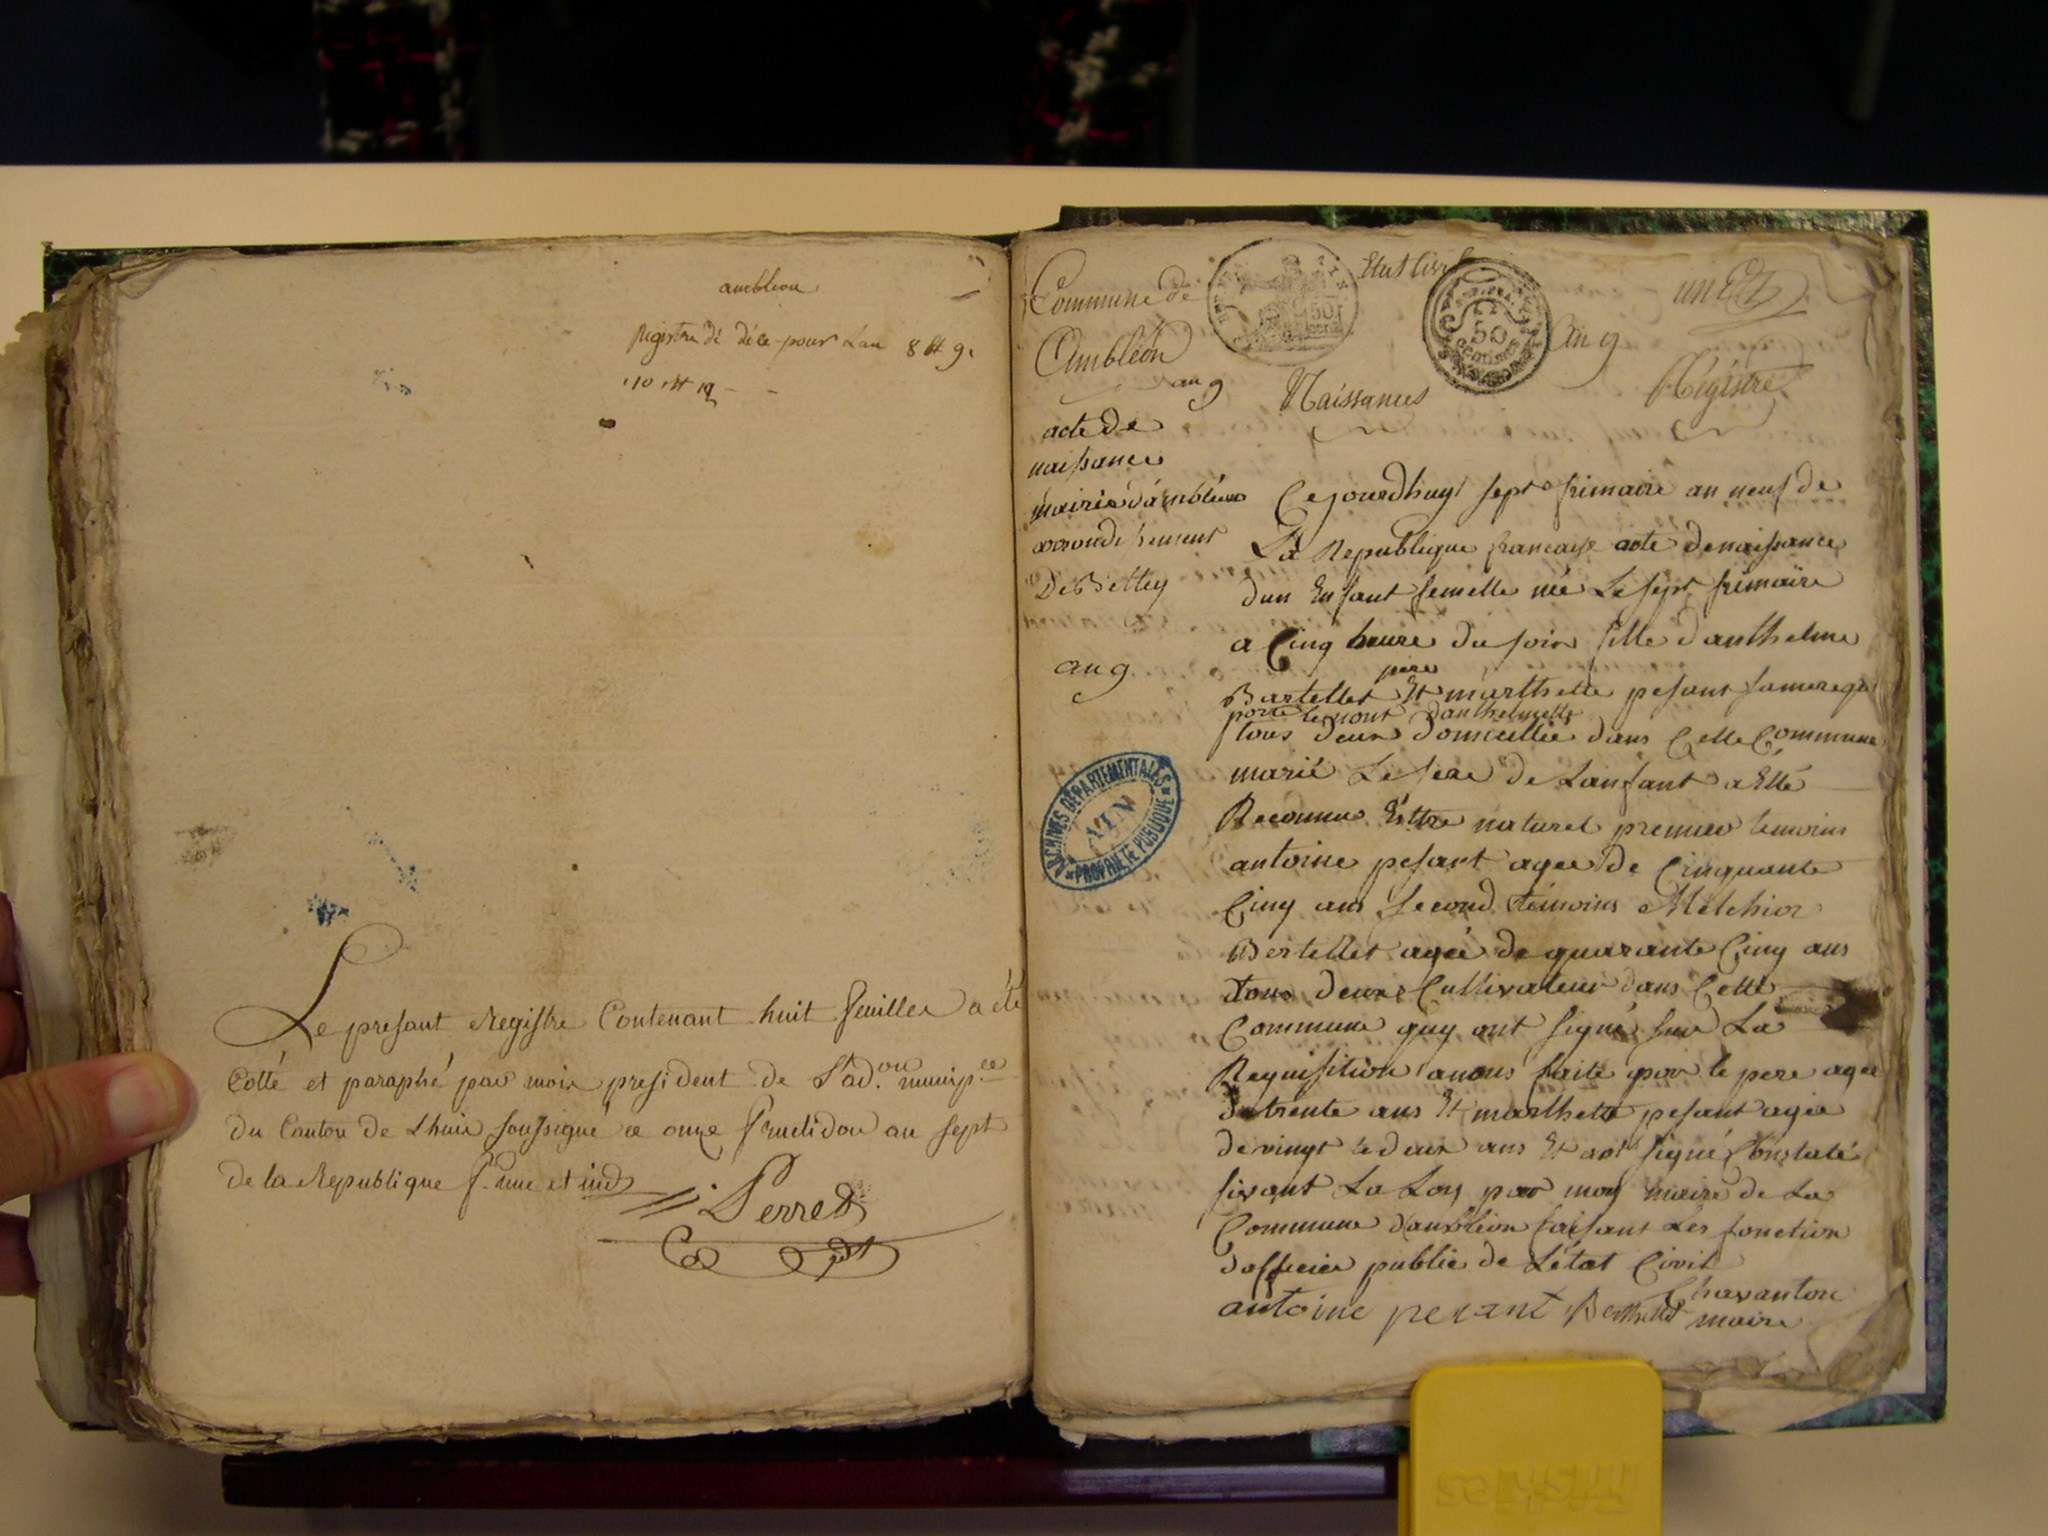 ambleon
Registre de déce pour Lan 8 Et 9.
10 Et 12
Le present Registre Contenant huit feuilles a été
Cotté et paraphé par moi president de L'ad.on munip.le
du Canton de Lhuis soussigné ce onze fructidor an sept
de la Republique f. une et ind
Perret
pdt
Commune de
Ambléon
an 9
Etat Civil
50
centimes
An 9
Naissances
Régistre
acte de
naissance
mairie d'ambléon
arrondissement
De Belley
an 9
ARCHIVES DÉPARTEMENTALES
AIN
PROPRIÉTÉ PUBLIQUE
Cejourdhuy sept frimaire an neuf de
La Republique francaise acte denaissance
dun Enfant femelle née Le sept frimaire
a Cinq heure du soir fille danthelme
pere
Bartellet Et marthette pesant samere qe
porte lenont danthelmette
tous deux domicillié dans Cette Commune
marié Le sexe de Lanfant a Etté
Reconnu Esttre naturel premier temoins
antoine pesant agee de Cinquante
Cinq ans second témoins Melchior
Bertellet ageé de quarante Cinq ans
tous deux Cultivateur dans Cette
Commune quy ont signé sur La
Requisition anous faite par le pere agee
detrente ans Et marthette pesant agée
de vingt te deux ans Et ont signé Constaté
sivant La Loy par moy maire de La
Commune d'ambleon faisant Les fonction
dofficier public de L'état Civil
Chavanton
antoine pesant Berthellet maire